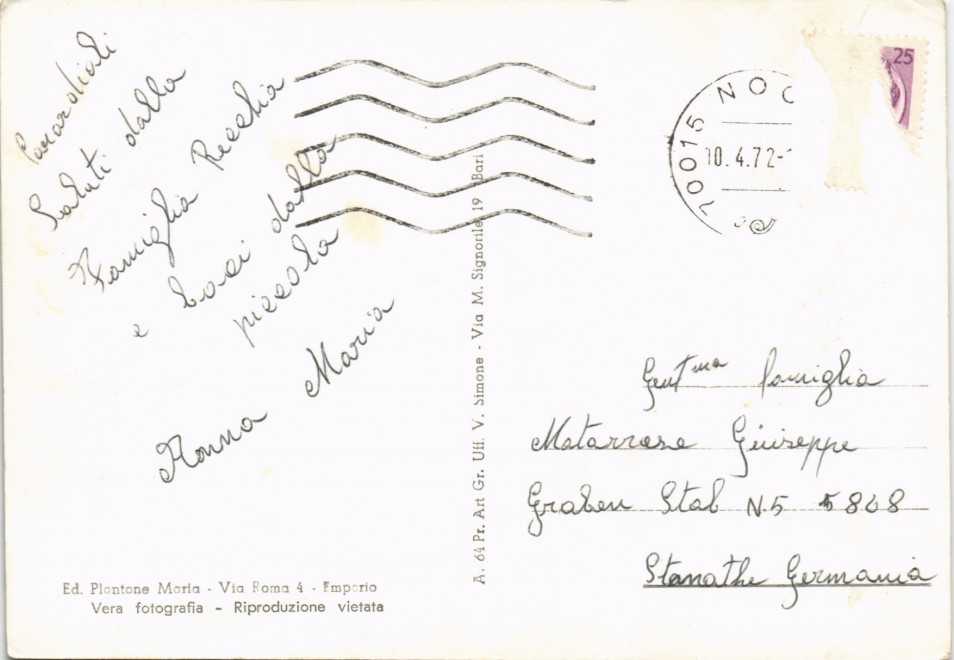 Cararoliali
Saluti dalla
Famiglia Recchia
e baci dalla
piccola
Nonna Maria
25
70015 NOC
10.4.72-
A. 64 Pr. Art Gr. Uff. V. Simone - Via M. Signorile 19 Bari
Gent.ma famiglia
Matarrese Giuseppe
Graben Stab N.5 5868
Stanathe Germania
Ed. Plantone Maria - Via Roma 4 - Emporio
Vera fotografia - Riproduzione vietata